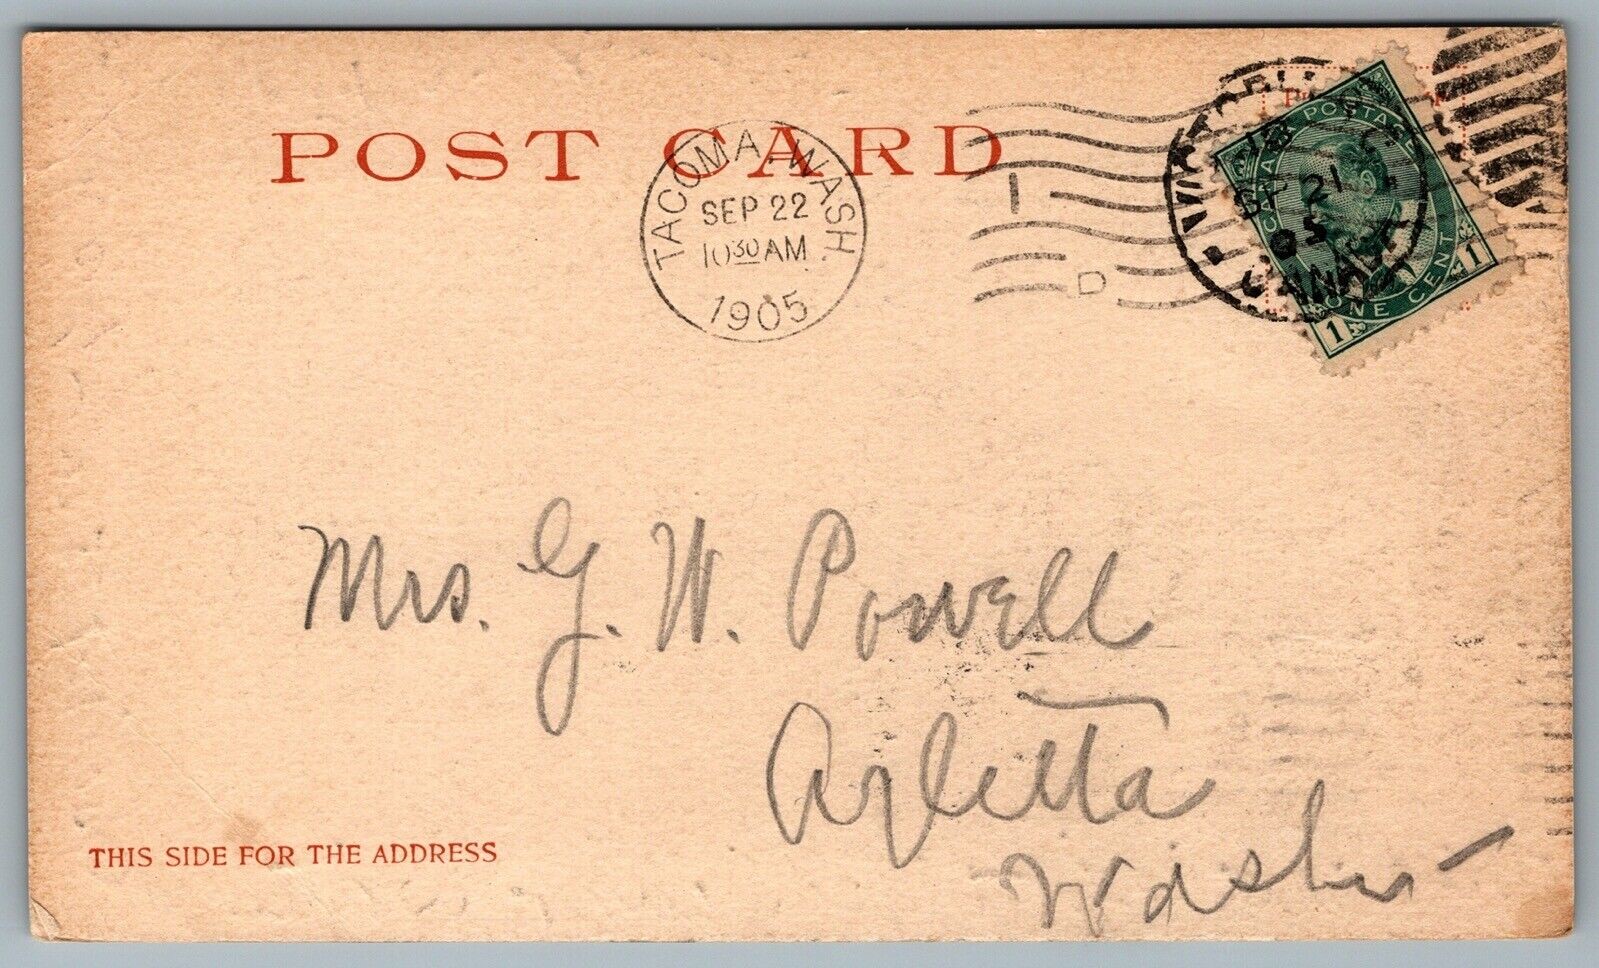 POST CARD
TACOMA. WASH.
SEP 22
10 30 AM
1905
1
D
VICTORIA
18
SP 21
05
CANADA
CANADA POSTAGE
1 ONE CENT 1
Mrs. G. W. Powell
Arletta
Washn
THIS SIDE FOR THE ADDRESS